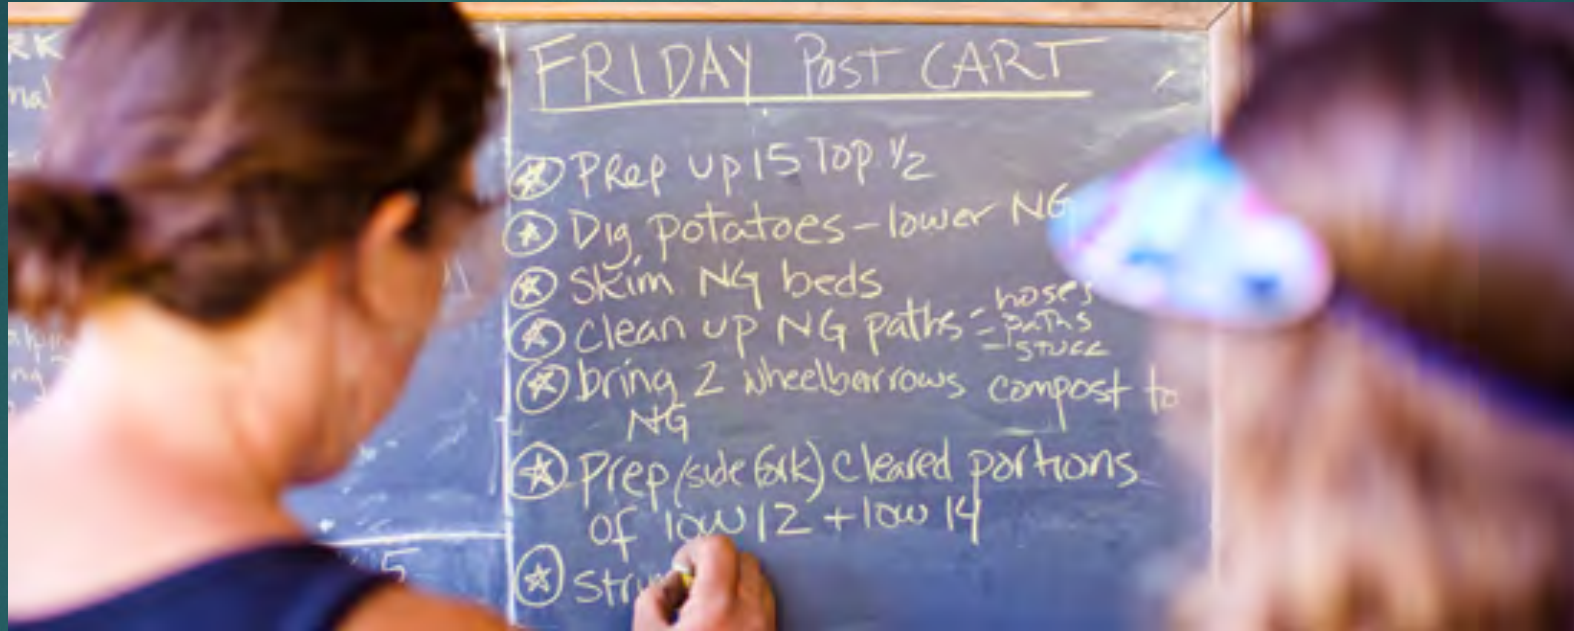 RK
FRIDAY POST CART
Prep up 15 Top 1/2
Dig potatoes - lower NG
Skim NG beds
clean up NG paths - hoses
- paths
- STUFF
bring 2 wheelbarrows compost to
NG
Prep (side fork) cleared portions
of low 12 + low 14
5